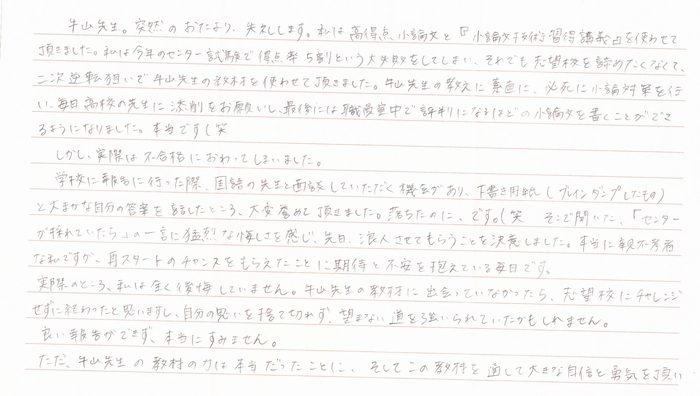 牛山先生。突然のおたより、失礼します。私は高得点小論文と『小論文技術習得講義』を使わせて
頂きました。私は今年のセンター試験で得点率5割という大失敗をしてしまい、それでも志望校を諦めたくなくて、
二次逆転狙いで牛山先生の教材を使わせて頂きました。牛山先生の教えに素直に、必死に小論対策を行
い、毎日高校の先生に添削をお願いし、最後には職員室中で評判になるほどの小論文を書くことができ
るようになりました。本当です(笑
しかし、実際は不合格におわってしまいました。
学校に報告に行った際、国語の先生と面談していただく機会があり、下書き用紙(ブレインダンプしたもの)
と大まかな自分の答案を見せたところ、大変誉めて頂きました。落ちたのに、です。(笑 そこで聞いた、「センター
が採れていたら」の一言に猛烈な悔しさを感じ、先日、浪人させてもらうことを決定しました。本当に親不孝者
な私ですが、再スタートのチャンスをもらえたことに期待と不安を抱えている毎日です。
実際のところ、私は全く後悔していません。牛山先生の教材に出会っていなかったら、志望校にチャレンジ
せずに終わったと思いますし、自分の思いを捨て切れず、望まない道を強いられていたかもしれません。
良い報告ができず、本当にすみません。
ただ、牛山先生の教材の力は本当だったことに、そしてこの教材を通して大きな自信と勇気を頂い